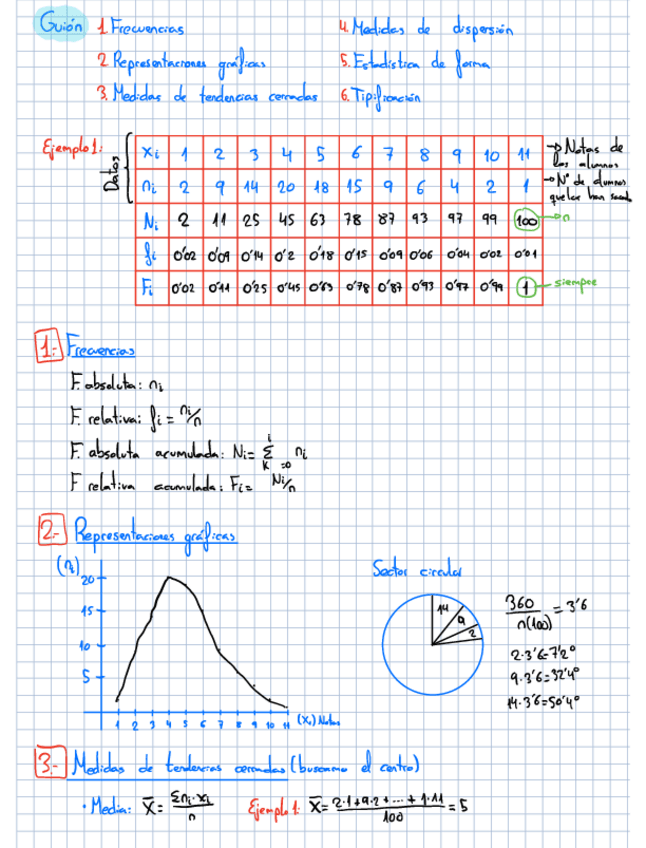 Guión 1 Frecuencias 4. Medidas de dispersión
2 Representaciones gráficas 5. Estadística de forma
3. Medidas de tendencias cerradas 6. Tipificación
Ejemplo 1:
Datos
xi 1 2 3 4 5 6 7 8 9 10 11 → Notas de los alumnos
ni 2 9 14 20 18 15 9 6 4 2 1 → Nº de alumnos que las han sacado
Ni 2 11 25 45 63 78 87 93 97 99 100 → n
fi 0'02 0'09 0'14 0'2 0'18 0'15 0'09 0'06 0'04 0'02 0'01
Fi 0'02 0'11 0'25 0'45 0'63 0'78 0'87 0'93 0'97 0'99 1 siempre
1.- Frecuencias
F. absoluta: ni
F. relativa: fi = ni/n
F. absoluta acumulada: Ni = i Σ k=0 ni
F relativa acumulada: Fi = Ni/n
2.- Representaciones gráficas
(ni)
20
15
10
5
1 2 3 4 5 6 7 8 9 10 11 (Xi) Notas
Sector circular
14
9
2
360/n(100) = 3'6
2·3'6=7'2º
9·3'6=32'4º
14·3'6=50'4º
3.- Medidas de tendencias cerradas (buscamos el centro)
· Media: X̄ = Σni·xi/n Ejemplo 1: X̄ = 2·1+9·2+...+1·11/100 = 5